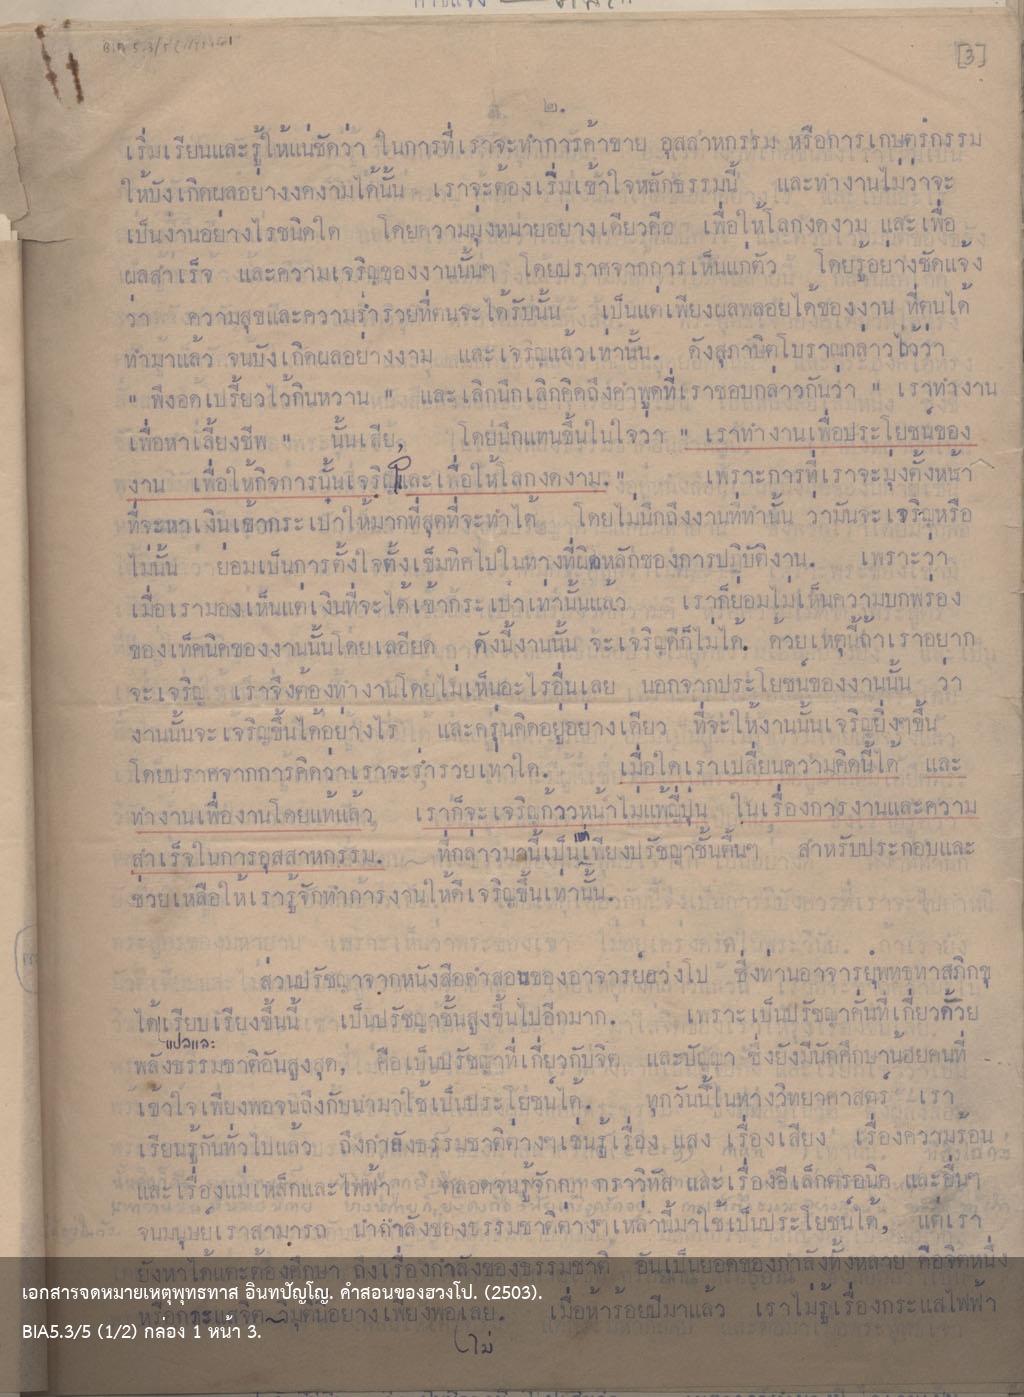 [3]
๒.
เริ่มเรียนและรู้ให้แน่ชัดว่า ในการที่เราจะทำการค้าขาย อุสสาหกรรม หรือการเกษตร์กรรม
ให้บังเกิดผลอย่างงดงามได้นั้น เราจะต้องเริ่มเข้าใจหลักธรรมนี้ และทำงานไม่ว่าจะ
เป็นงานอย่างไรชนิดใด โดยความมุ่งหมายอย่างเดียวคือ เพื่อให้โลกงดงาม และเพื่อ
ผลสำเร็จ และความเจริญของงานนั้นๆ โดยปราศจากการเห็นแก่ตัว โดยรู้อย่างชัดแจ้ง
ว่า ความสุขและความร่ำรวยที่ตนจะได้รับนั้น เป็นแต่เพียงผลพลอยได้ของงาน ที่ตนได้
ทำมาแล้ว จนบังเกิดผลอย่างงาม และเจริญแล้วเท่านั้น. ดังสุภาษิตโบราณกล่าวไว้ว่า
" พึงอดเปรี้ยวไว้กินหวาน " และเลิกนึกเลิกคิดถึงคำพูดที่เราชอบกล่าวกันว่า " เราทำงาน
เพื่อหาเลี้ยงชีพ " นั้นเสีย, โดยนึกแทนขึ้นในใจวา " เราทำงานเพื่อประโยชน์ของ
งาน เพื่อให้กิจการนั้นเจริญและเพื่อให้โลกงดงาม. " เพราะการที่เราจะมุ่งตั้งหน้า
ที่จะหาเงินเข้ากระเป๋าให้มากที่สุดที่จะทำได้ โดยไม่นึกถึงงานที่ทำนั้น ว่ามันจะเจริญหรือ
ไม่นั้น ย่อมเป็นการตั้งใจตั้งเข็มทิศไปในทางที่ผิดหลักของการปฏิบัติงาน. เพราะว่า
เมื่อเรามองเห็นแต่เงินที่จะได้เข้ากระเป๋าเท่านั้นแล้ว เราก็ย่อมไม่เห็นความบกพร่อง
ของเท็คนิคของงานนั้นโดยเลอียด ดังนี้งานนั้น จะเจริญดีก็ไม่ได้. ด้วยเหตุนี้ถ้าเราอยาก
จะเจริญ เราจึงต้องทำงานโดยไม่เห็นอะไรอื่นเลย นอกจากประโยชน์ของงานนั้น ว่า
งานนั้นจะเจริญขึ้นได้อย่างไร และครุ่นคิดอยู่อย่างเดียว ที่จะให้งานนั้นเจริญยิ่งๆขึ้น
โดยปราศจากการคิดว่าเราจะร่ำรวยเท่าใด. เมื่อใดเราเปลี่ยนความคิดนี้ได้ และ
ทำงานเพื่องานโดยแท้แล้ว เราก็จะเจริญก้าวหน้าไม่แพ้ญี่ปุ่น ในเรื่องการงานและความ
สำเร็จในการอุสสาหกรรม. ที่กล่าวมานี้เป็นแต่เพียงปรัชญาชั้นตื้นๆ สำหรับประกอบและ
ช่วยเหลือให้เรารู้จักทำการงานให้ดีเจริญขึ้นเท่านั้น.
ส่วนปรัชญาจากหนังสือคำสอนของอาจารย์ฮวงโป ซึ่งท่านอาจารย์พุทธทาสภิกขุ
ได้เรียบเรียงขึ้นนี้ เป็นปรัชญาชั้นสูงขึ้นไปอีกมาก. เพราะเป็นปรัชญาคั่นที่เกี่ยวด้วย
แปลและ
พลังธรรมชาติอันสูงสุด, คือเป็นปรัชญาที่เกี่ยวกับจิต และปัญญา ซึ่งยังมีนักศึกษาน้อยคนที่
เข้าใจเพียงพอจนถึงกับนำมาใช้เป็นประโยชน์ได้. ทุกวันนี้ในทางวิทยาศาสตร์ เรา
เรียนรู้กันทั่วไปแล้ว ถึงกำลังธรรมชาติต่างๆเช่นรู้เรื่อง แสง เรื่องเสียง เรื่องความร้อน
และเรื่องแม่เหล็กและไฟฟ้า ตลอดจนรู้จัก กราวิทัส และเรื่องอีเล็กตรอนิค และอื่นๆ
จนมนุษย์เราสามารถ นำกำลังของธรรมชาติต่างๆเหล่านี้มาใช้เป็นประโยชน์ได้, แต่เรา
ยังหาได้แตะต้องศึกษา ถึงเรื่องกำลังของธรรมชาติ อันเป็นยอดของกำลังทั้งหลาย คือจิตหนึ่ง
หรือกระแสจิต วิมุตินี้อย่างเพียงพอเลย. เมื่อห้าร้อยปีมาแล้ว เราไม่รู้เรื่องกระแสไฟฟ้า
(ไม่
เอกสารจดหมายเหตุพุทธทาส อินทปัญโญ. คำสอนของฮวงโป. (2503).
BIA5.3/5 (1/2) กล่อง 1 หน้า 3.